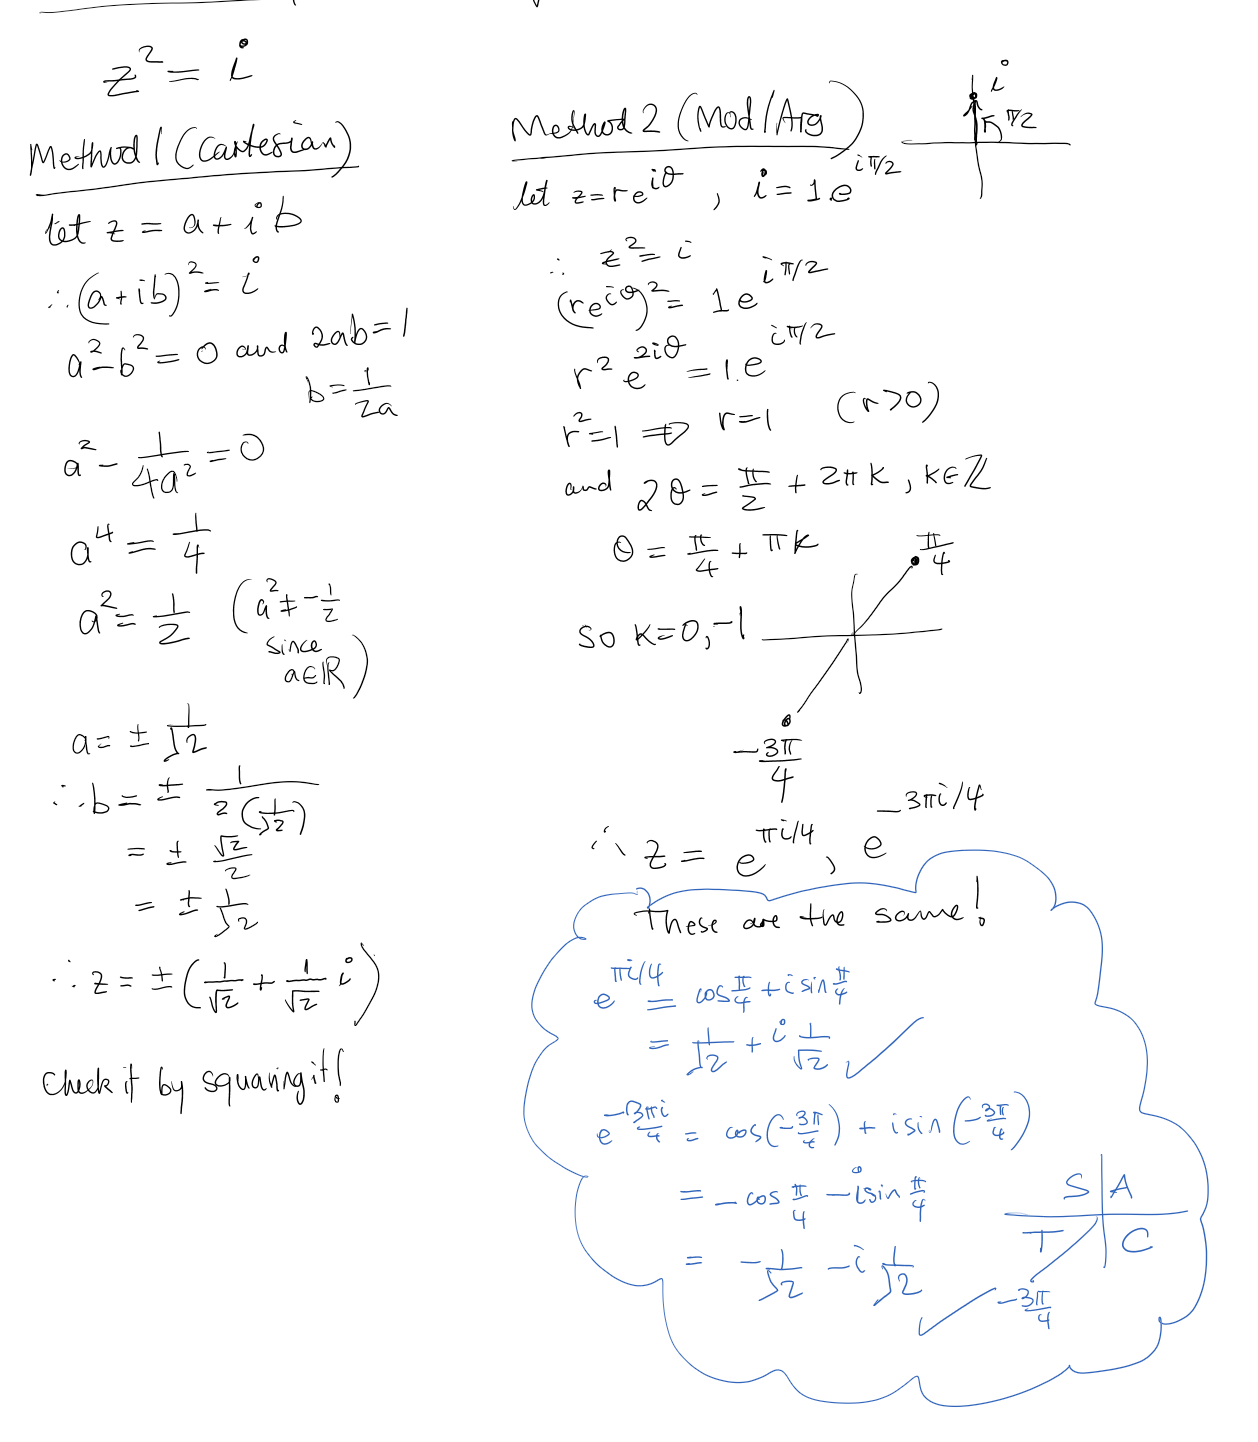 z² = i
Method 1 (Cartesian)
let z = a + ib
∴ (a+ib)² = i
a² - b² = 0 and 2ab = 1
b = 1/2a
a² - 1/4a² = 0
a⁴ = 1/4
a² = 1/2 (a² ≠ -1/2
since
a∈ℝ)
a = ± 1/√2
∴ b = ± 1/2(1/√2)
= ± √2/2
= ± 1/√2
∴ z = ±(1/√2 + 1/√2 i)
Check it by squaring it!
Method 2 (Mod/Arg)
i
π/2
let z = re^{iθ} , i = 1.e^{iπ/2}
∴ z² = i
(re^{iθ})² = 1e^{iπ/2}
r² e^{2iθ} = 1.e^{iπ/2}
r² = 1 ⇒ r = 1 (r>0)
and 2θ = π/2 + 2πk, k∈ℤ
θ = π/4 + πk
π/4
so k = 0, -1
-3π/4
∴ z = e^{πi/4}, e^{-3πi/4}
These are the same!
e^{πi/4} = cos π/4 + i sin π/4
= 1/√2 + i 1/√2 ✓
e^{-3πi/4} = cos(-3π/4) + i sin(-3π/4)
= -cos π/4 - i sin π/4
S A
T C
= -1/√2 - i 1/√2 ✓
-3π/4